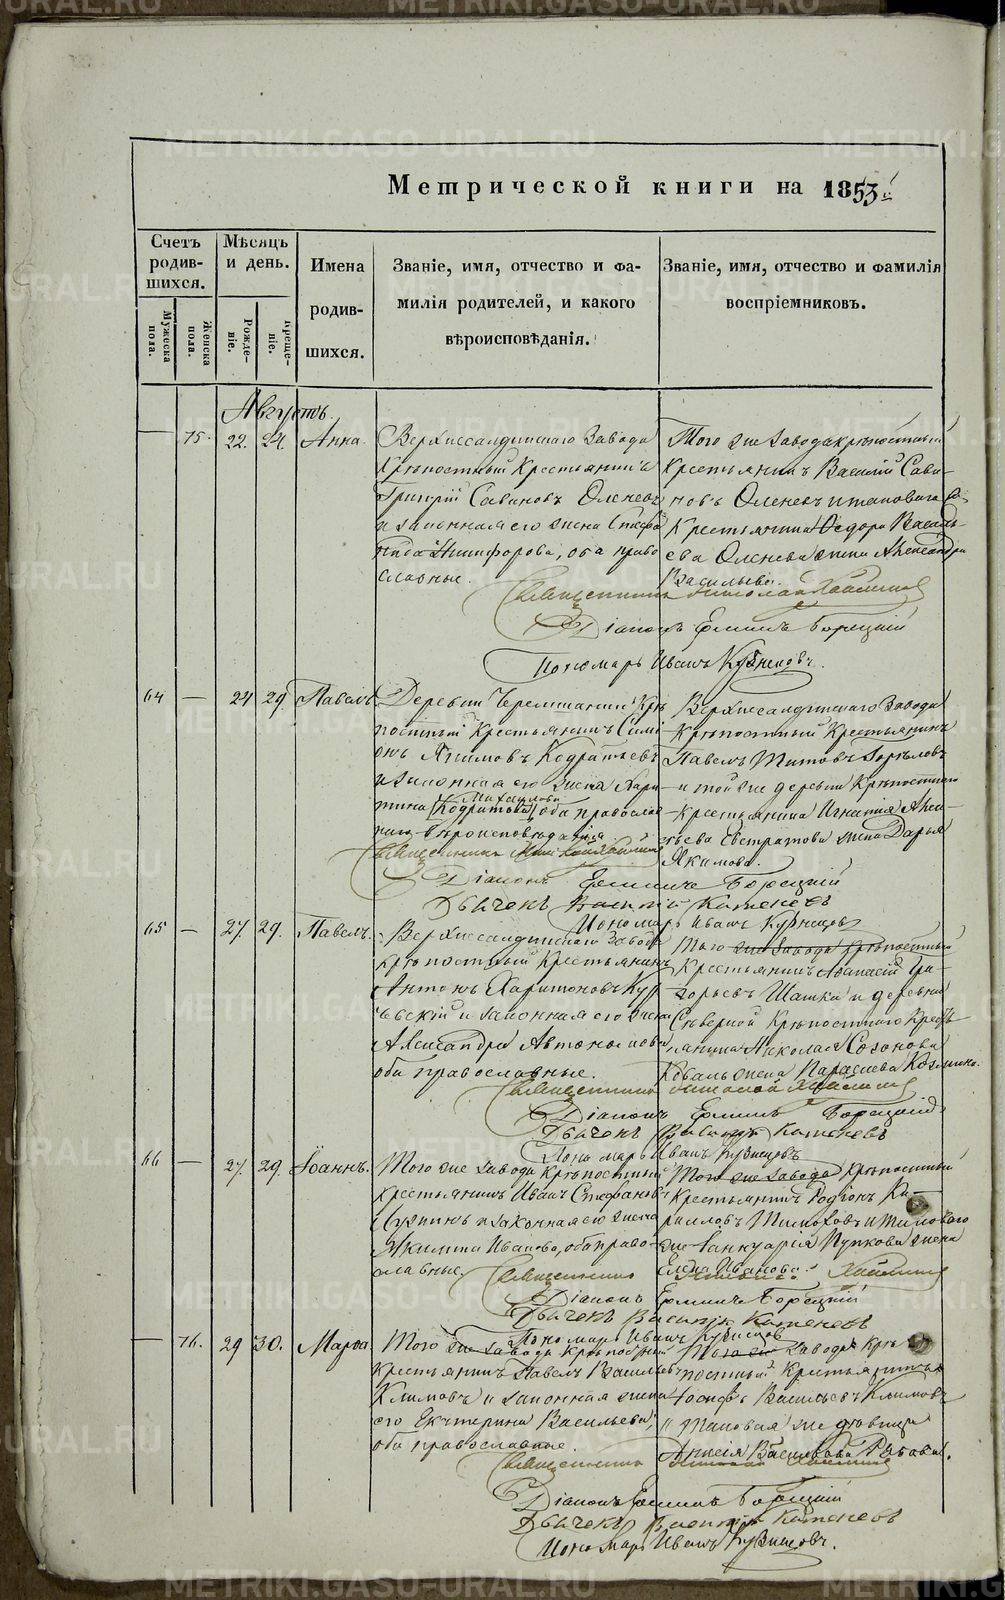 Метрической книги на 1853 й
Счетъ родившихся.
Мужеска пола.
Женска пола.
Мѣсяцъ и день.
Рожденіе.
Крещеніе.
Имена родившихся.
Званіе, имя, отчество и фамилія родителей, и какого вѣроисповѣданія.
Званіе, имя, отчество и фамилія воспріемниковъ.
Августъ.
— 75. 22. 24. Анна.
Верхнесалдинскаго Завода
Крѣпостный Крестьянинъ
Григорій Савиновъ Оленевъ
и законная его жена
Никифорова, оба православные.
Того же завода крѣпостный
Крестьянинъ Василій Савиновъ Оленевъ и таковаго же
Крестьянина Ѳедора Васильева Оленева жена Александра
Васильева.
Священникъ Николай
Діаконъ Ермилъ Борецкій
Пономарь Иванъ Кузнецовъ.
64 — 24 29 Павелъ.
Деревни Крѣпостный Крестьянинъ
Акимовъ Кодратьевъ
и законная его жена Харитина
Михайлова
оба православнаго вѣроисповѣданія
Верхнесалдинскаго Завода
Крѣпостный Крестьянинъ
Павелъ Титовъ
и той же деревни Крѣпостнаго
Крестьянина Игнатія
Евстратова жена Дарья
Акимова.
Священникъ Николай
Діаконъ Ермилъ Борецкій
Дьячекъ Василій Каменевъ
Пономарь Иванъ Кузнецовъ
65 — 27. 29. Павелъ.
Верхнесалдинскаго Завода
крѣпостный Крестьянинъ
Антонъ Харитоновъ
и законная его жена
Александра Автономова
оба православные.
Того же завода крѣпостный
Крестьянинъ Аѳанасій Григорьевъ Шашка и деревни
Сѣверной Крѣпостнаго Крестьянина Николая Созонова
Коваль жена Параскева Козмина.
Священникъ Николай
Діаконъ Ермилъ Борецкій
Дьячекъ Василій Каменевъ
Пономарь Иванъ Кузнецовъ
66 — 27. 29. Іоаннъ.
Того же завода Крѣпостный
Крестьянинъ Иванъ Стефановъ
и законная его жена
Акилина Иванова, оба православные.
Того же завода крѣпостный
Крестьянинъ Родіонъ Кириловъ и таковаго
же Пупкова жена
Елена Иванова.
Священникъ Николай
Діаконъ Ермилъ Борецкій
Дьячекъ Василій Каменевъ
Пономарь Иванъ Кузнецовъ
— 76. 29 30. Марѳа.
Того же завода Крѣпостный
Крестьянинъ Павелъ Васильевъ
Климовъ и законная жена
его Екатерина Васильева,
оба православные.
Того же завода Крѣпостный Крестьянинъ
Іосифъ Васильевъ Климовъ
и таковая же дѣвица
Васильева
Священникъ Николай
Діаконъ Ермилъ Борецкій
Дьячекъ Василій Каменевъ
Пономарь Иванъ Кузнецовъ.
METRIKI.GASO-URAL.RU